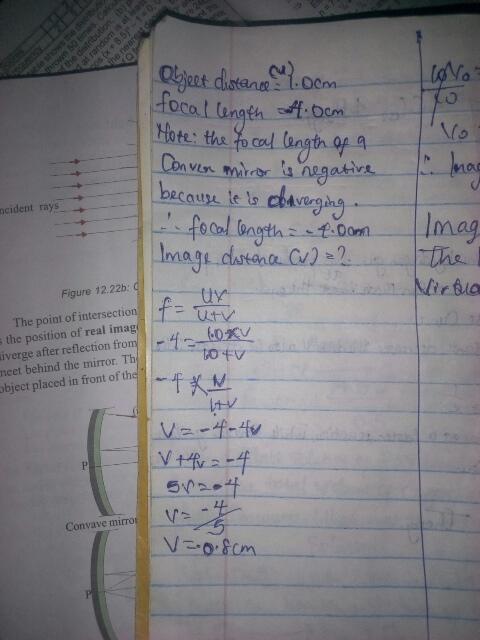 ncident rays
Figure 12.22b: C
The point of intersection
s the position of real imag
iverge after reflection from
meet behind the mirror. The
object placed in front of the
P
Convave mirro
P
Object distance (u) = 1.0cm
focal length = 4.0cm
Note: the focal length of a
Convex mirror is negative
because is is diverging.
∴ focal length = -4.0cm
Image distance (v) = ?
f = uv / u+v
-4 = 1.0×v / 1.0+v
-4 = v / 1+v
V = -4-4v
V+4v = -4
5v = -4
V = -4/5
V = -0.8cm
Vo
∴ Imag
Imag
The
Virtua